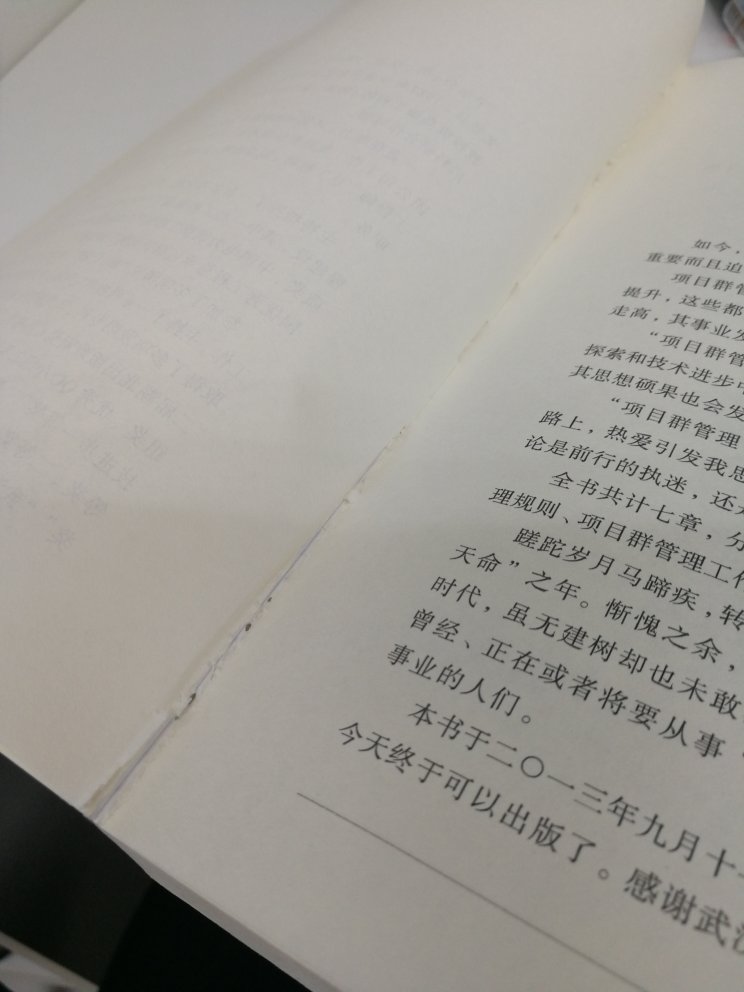 如今，
重要而且迫
项目群管
提升，这些都
走高，其事业发
“项目群管
探索和技术进步中
其思想硕果也会发
“项目群管理
路上，热爱引发我思
论是前行的执迷，还
全书共计七章，分
理规则、项目群管理工作
蹉跎岁月马蹄疾，转
天命”之年。惭愧之余，
时代，虽无建树却也未敢
曾经、正在或者将要从事
事业的人们。
本书于二〇一三年九月十
今天终于可以出版了。感谢武汉